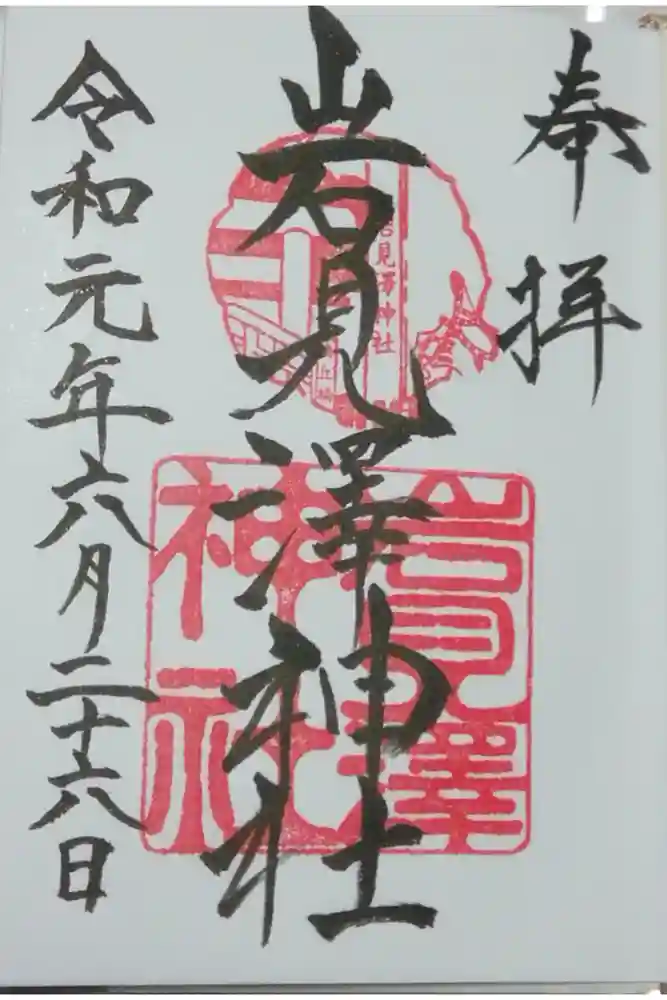 奉拝
岩見澤神社
令和元年六月二十六日
岩見澤神社
岩見澤
神社